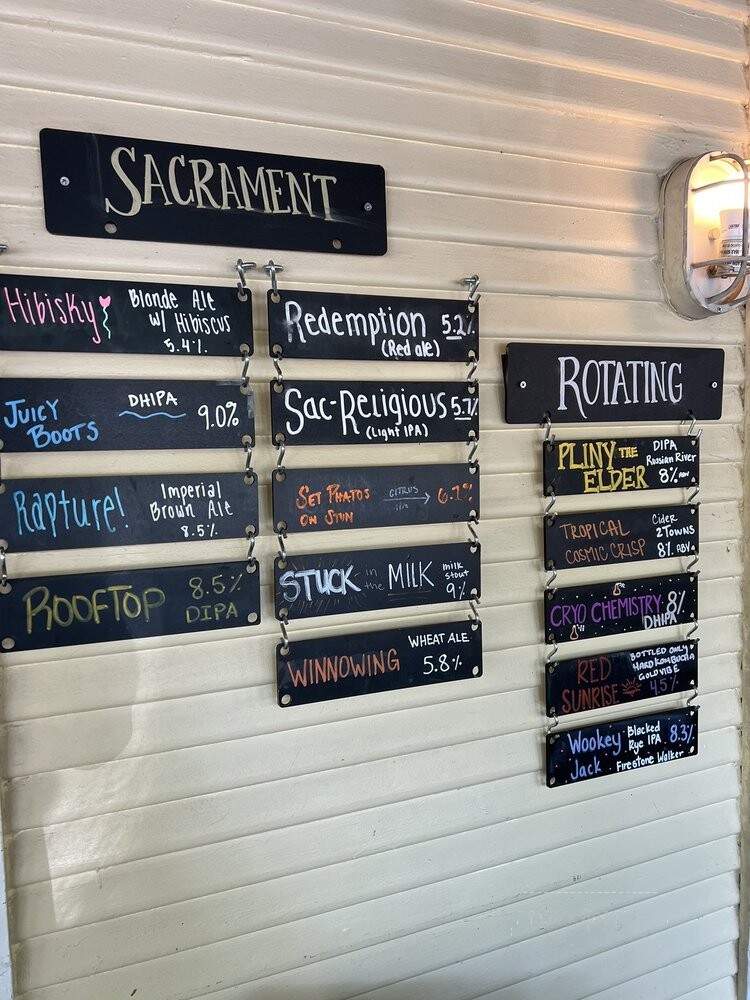 SACRAMENT
Hibisky
Blonde Ale
w/ Hibiscus
5.4%
JUICY
BOOTS
DHIPA
9.0%
Rapture!
Imperial
Brown Ale
8.5%
ROOFTOP
8.5%
DIPA
Redemption 5.2%
(Red ale)
Sac-Religious 5.7%
(Light IPA)
SET PHATOS
ON STUN
CITRUS
IPA
STUCK in the MILK
milk
stout
9%
WINNOWING
WHEAT ALE
5.8%
ROTATING
PLINY THE
ELDER
DIPA
Russian River
8% ABV
TROPICAL
COSMIC CRISP
Cider
2Towns
8% ABV
CRYO CHEMISTRY 8%
DHIPA
RED
SUNRISE
BOTTLED ONLY
HARD KOMBUCHA
GOLDVIBE
4.5%
Wookey
Jack
Blacked
Rye IPA
8.3%
Firestone Walker